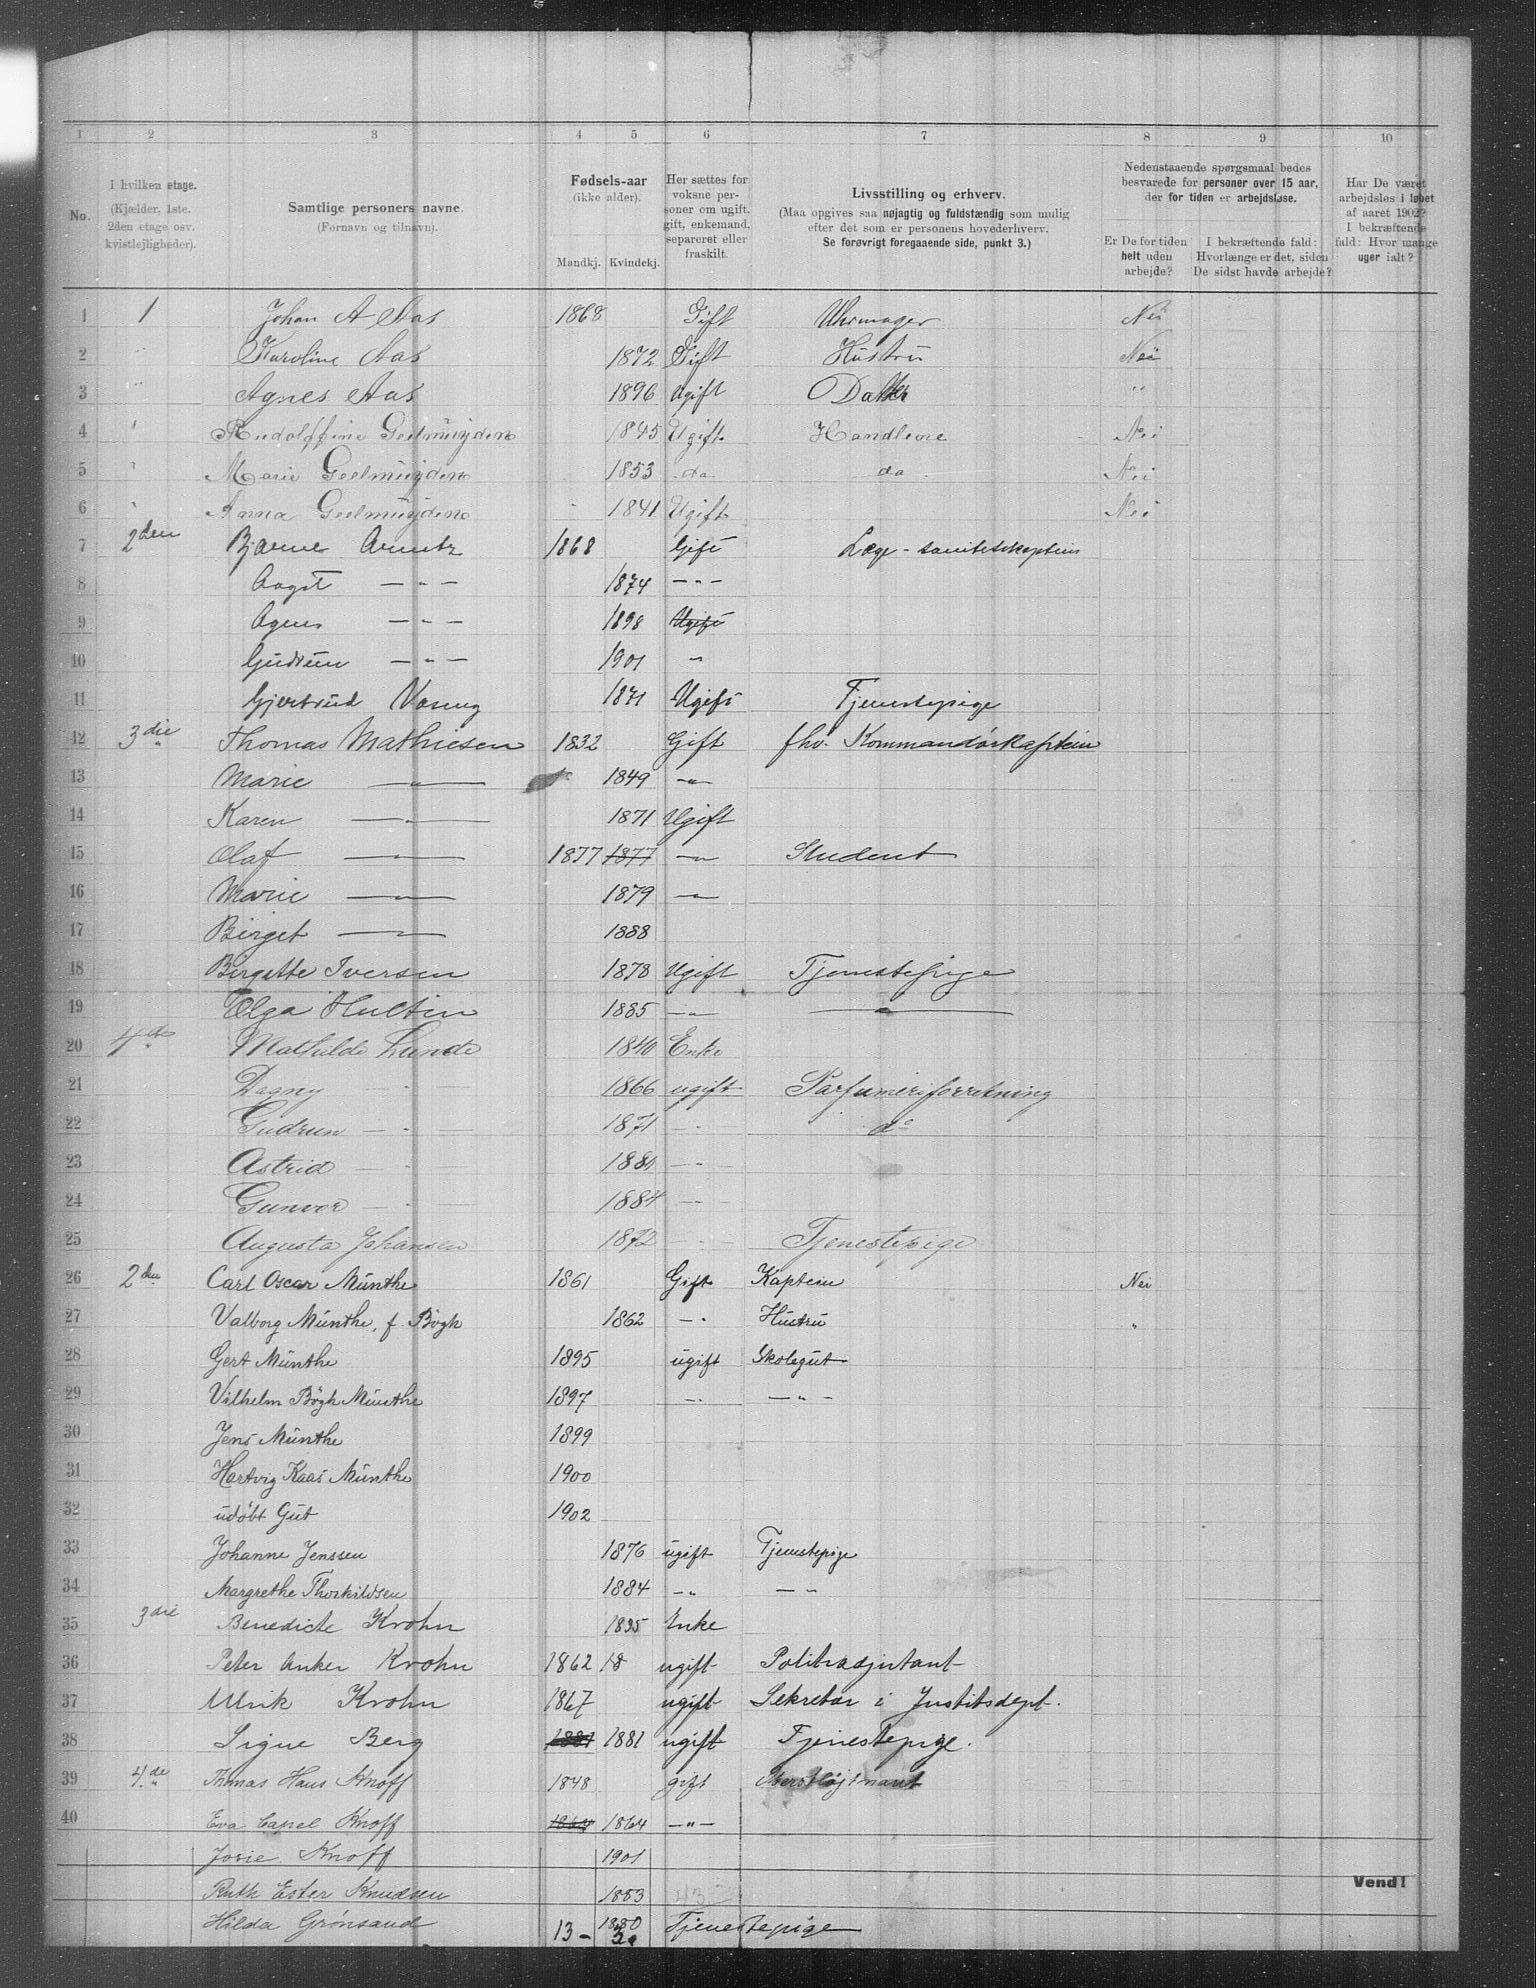 1 2 3 4 5 6 7 8 9 10
No.
I hvilken etage.
(Kjælder, 1ste.
2den etage osv.
kvistlejligheder).
Samtlige personers navne.
(Fornavn og tilnavn).
Fødsels-aar
(ikke alder).
Mandkj. Kvindekj.
Her sættes for
voksne per-
soner om ugift,
gift, enkemand,
separeret eller
fraskilt.
Livsstilling og erhverv.
(Maa opgives saa nøjagtig og fuldstændig som mulig
efter det som er personens hovederhverv.
Se forøvrigt foregaaende side, punkt 3.)
Nedenstaaende spørgsmaal bedes
besvarede for personer over 15 aar,
der for tiden er arbejdsløse.
Er De for tiden
helt uden
arbejde?
I bekræftende fald:
Hvorlænge er det, siden
De sidst havde arbejde?
Har De været
arbejdsløs i løbet
af aaret 1902?
I bekræftende
fald: Hvor mange
uger ialt?
1 1 Johan A Aas 1868 Gift Uhrmager Nei
2 " Karoline Aas 1872 Gift Hustru Nei
3 " Agnes Aas 1896 Ugift Datter "
4 " Rudolffine Geelmuyden 1845 Ugift Handlene Nei
5 " Marie Geelmuyden 1853 do do Nei
6 " Anna Geelmuyden 1841 Ugift Nei
7 2den Bjarne Arentz 1868 Gift Læge - sanitetskaptein
8 Aagot — " — 1874 — " —
9 Agnes — " — 1898 Ugift
10 Gudrun — " — 1901 "
11 Gjertrud 1871 Ugift Tjenestepige
12 3die Thomas Mathiesen 1832 Gift fhv. Kommandørkaptein
13 Marie — " — 1849 — " —
14 Karen — " — 1871 Ugift
15 Olaf — " — 1877 1877 — " — Student
16 Marie — " — 1879 — " —
17 Birget — " — 1888
18 Birgitte Iversen 1878 Ugift Tjenestepige
19 Olga Hultin 1885 — " — — " —
20 4de Mathilde Lunde 1840 Enke
21 Dagny — " — 1866 ugift Parfumeriforretning
22 Gudrun — " — 1871 — " do
23 Astrid — " — 1881 — " —
24 Gunvor — " — 1884 — " —
25 Augusta Johansen 1872 — " — Tjenestepige
26 2den Carl Oscar Münthe 1861 Gift Kaptein Nei
27 Valborg Münthe, f. Bøgh 1862 — " Hustru "
28 Gert Münthe 1895 ugift Skolegut
29 Vilhelm Bøgh Münthe 1897 — " — — " —
30 Jens Münthe 1899
31 Hartvig Kaas Münthe 1900
32 udøbt Gut 1902
33 Johanne Jenssen 1876 ugift Tjenestepige
34 Margrethe Thorkildsen 1884 — " — — "
35 3die Benedicte Krohn 1835 Enke
36 Peter Anker Krohn 1862 18 ugift Politiadjutant
37 Ulrik Krohn 1867 ugift Sekretær i Justitsdept.
38 Signe Berg 1881 1881 ugift Tjenestepige.
39 4de Thomas Hans Knoff 1848 gift Oberstløjtnant
40 Eva Capel Knoff 1864 1864 — " —
Josie Knoff 1901
Ruth Ester Knudsen 1883
Vend!
Hilda Grønsand 1880 Tjenestepige
13 -